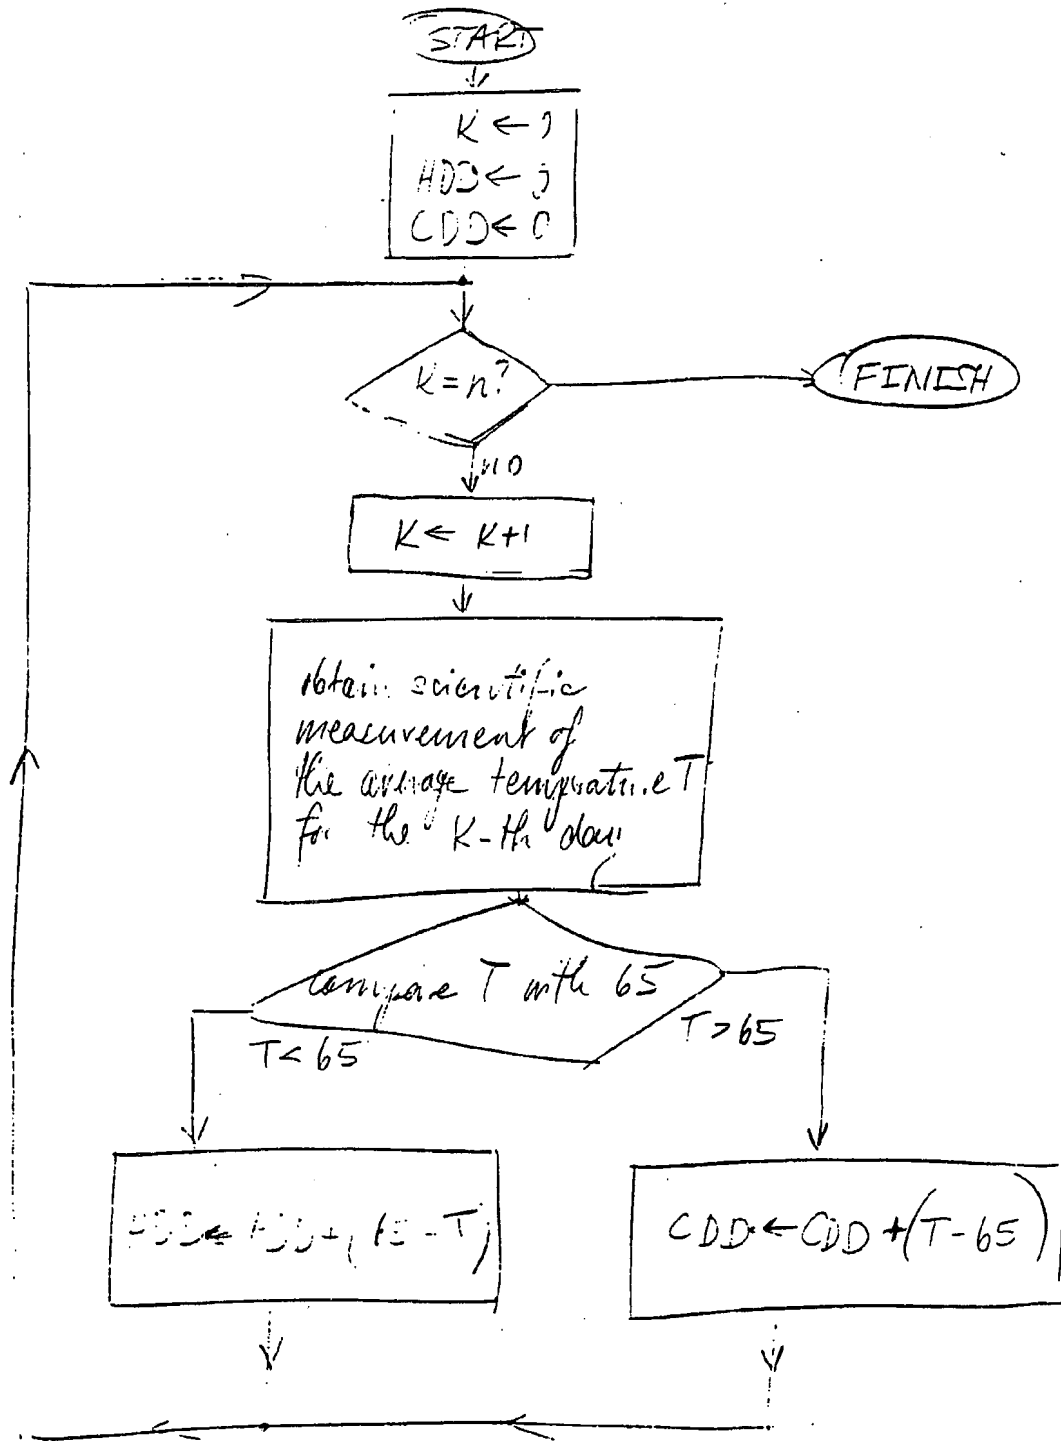 START
K ← 0
HDD ← 0
CDD ← 0
K = n?
FINISH
no
K ← K+1
obtain scientific
measurement of
the average temprature T
for the K-th day
compare T with 65
T < 65
T > 65
HDD ← HDD + (65 - T)
CDD ← CDD + (T - 65)